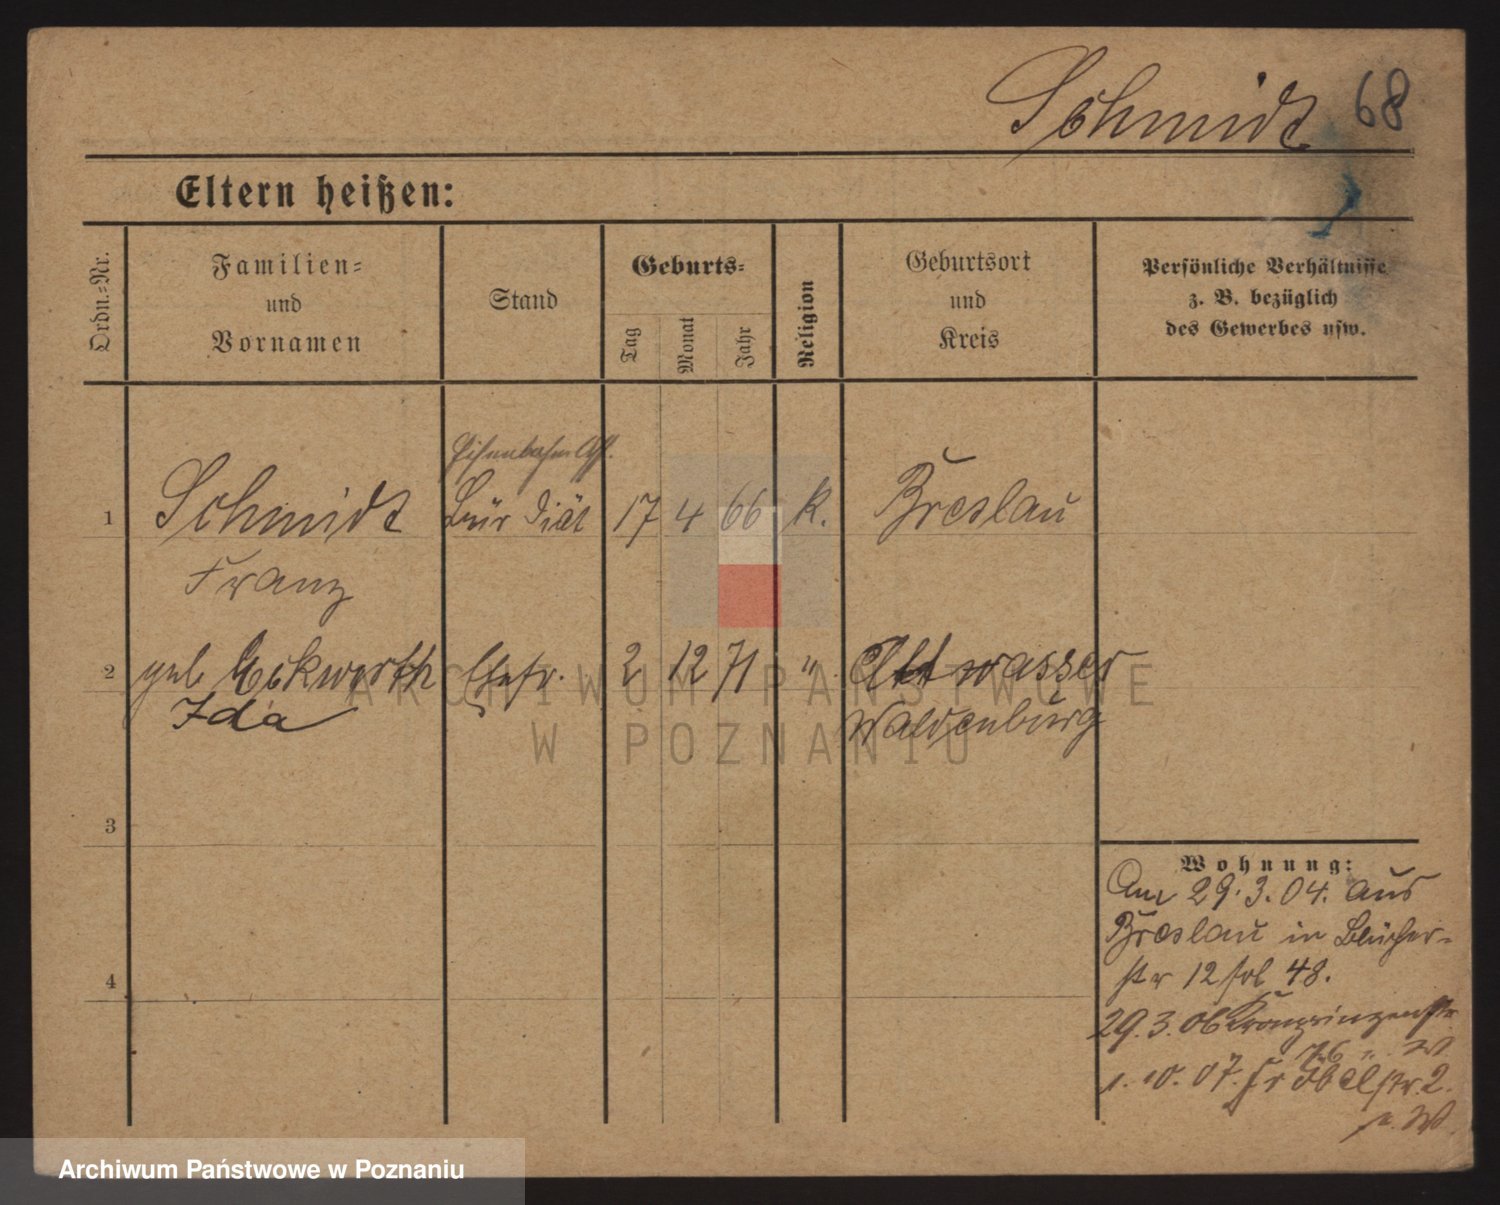 Schmidt 68
Eltern heißen:
Ordn.=Nr.
Familien=
und
Vornamen
Stand
Geburts=
Tag
Monat
Jahr
Religion
Geburtsort
und
Kreis
Persönliche Verhältnisse
z. B. bezüglich
des Gewerbes usw.
Eisenbahn
1 Schmidt Bür Diät 17 4 66 k. Breslau
Franz
2 geb Eckwerth Ehefr. 2 12 71 " Altwasser
Ida Waldenburg
3
4
Wohnung:
Am 29.3.04. aus
Breslau in Blücher=
str 12 48.
29.3.06 Kronprinzenstr
76 " W
1.10.07. Fröbelstr. 2.
W
ARCHIWUM PAŃSTWOWE
W POZNANIU
Archiwum Państwowe w Poznaniu